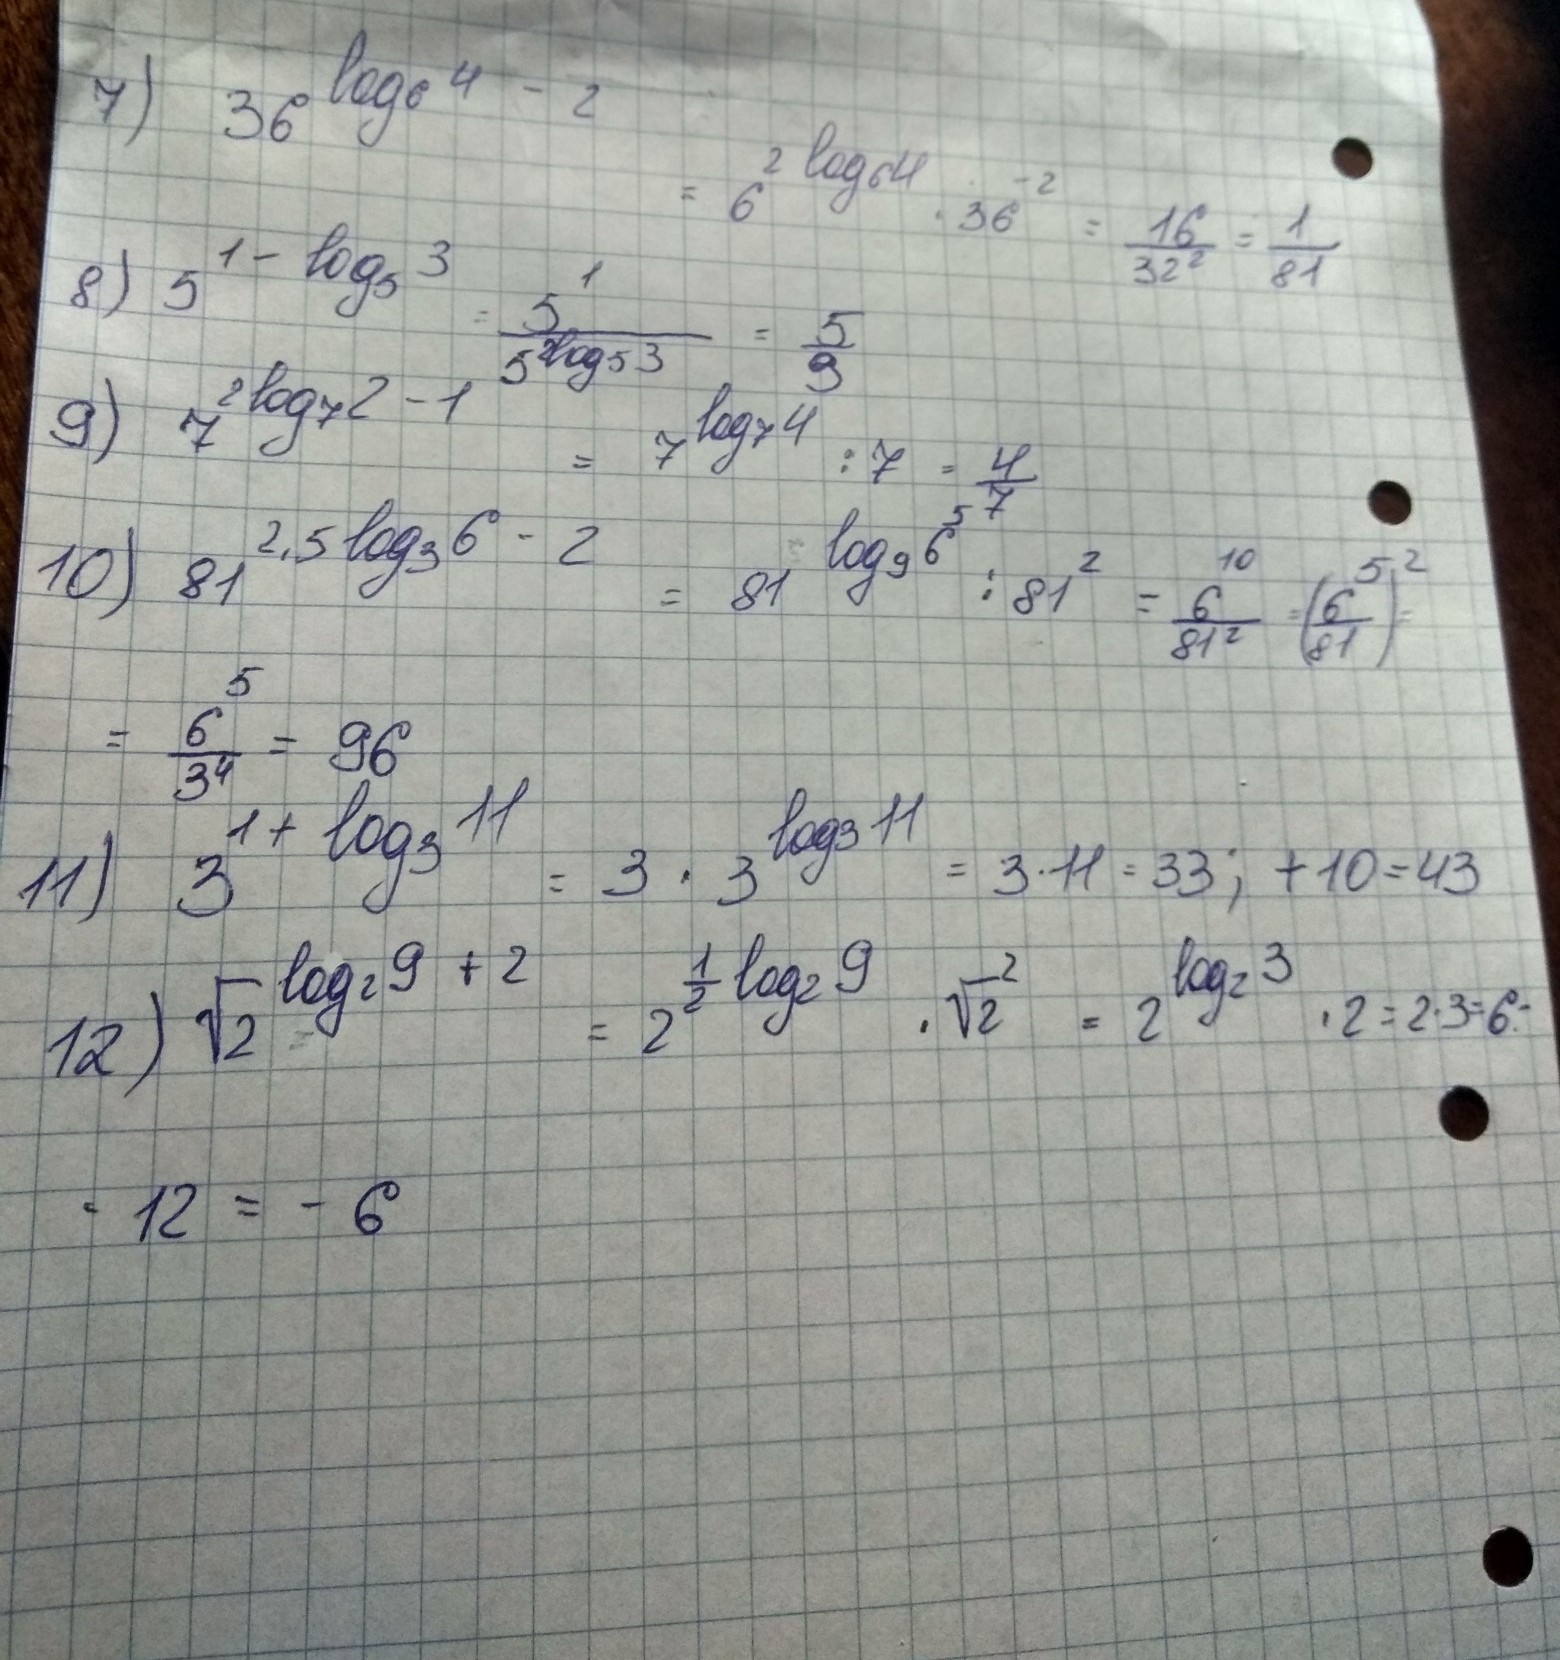 7) 36^{log₆ 4 - 2} = 6^{2 log₆ 4} · 36^{-2} = 16/32² = 1/81
8) 5^{1 - log₅ 3} = 5¹/5^{2log₅ 3} = 5/9
9) 7^{2log₇ 2 - 1} = 7^{log₇ 4} : 7 = 4/7
10) 81^{2,5 log₃ 6 - 2} = 81^{log₉ 6⁵} : 81² = 6¹⁰/81² = (6⁵/81)² =
= 6⁵/3⁴ = 96
11) 3^{1 + log₃ 11} = 3 · 3^{log₃ 11} = 3·11 = 33; +10 = 43
12) √2^{log₂ 9 + 2} = 2^{½ log₂ 9} · √2² = 2^{log₂ 3} · 2 = 2·3 = 6 -
- 12 = - 6